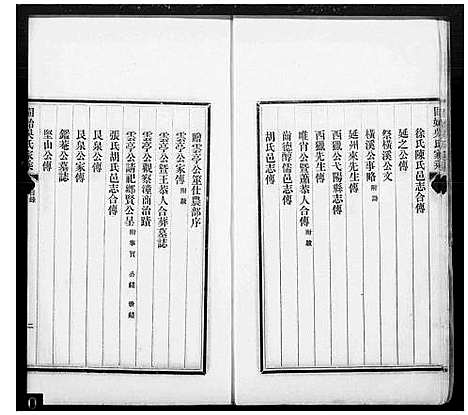 固始吳氏家乘
徐氏陳氏邑志合傳
延之公傳
祭橫溪公文
橫溪公事略 附詩
延州來先生傳
西獵公弋陽縣志傳
西獵先生傳
唯宵公暨蕭恭人合傳 附敘
齒德醇儒邑志傳
胡氏傳
贈雲亭公籤仕農部序
雲亭公家傳 附敘
雲亭公暨王恭人合葬墓誌
雲亭公觀察漳南治蹟
雲亭公請祀鄉賢公呈 附事實
張氏胡氏邑志合傳
艮泉公傳
艮泉公家傳
鑑菴公墓誌
堅山公傳
固始吳氏家乘
二